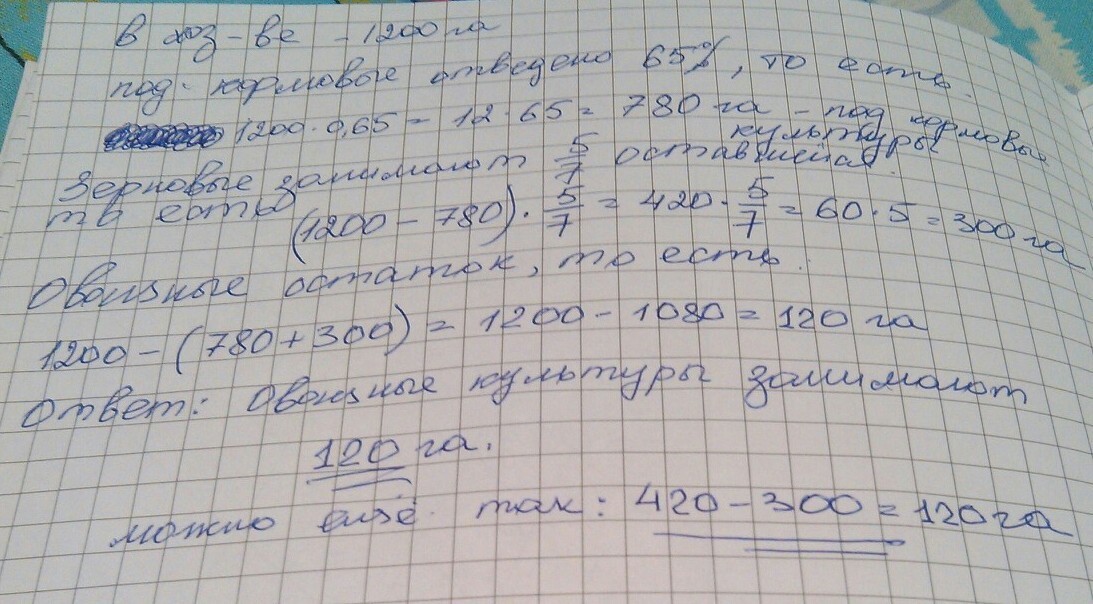 В хоз-ве - 1200 га
под кормовые отведено 65%, то есть.
1200 · 0,65 = 12 · 65 = 780 га - под кормовые
культуры
Зерновые занимают 5/7 оставшейся.
то есть
(1200 - 780) · 5/7 = 420 · 5/7 = 60 · 5 = 300 га
Овощные остаток, то есть.
1200 - (780 + 300) = 1200 - 1080 = 120 га
Ответ: Овощные культуры занимают
120 га.
можно ещё так: 420 - 300 = 120 га